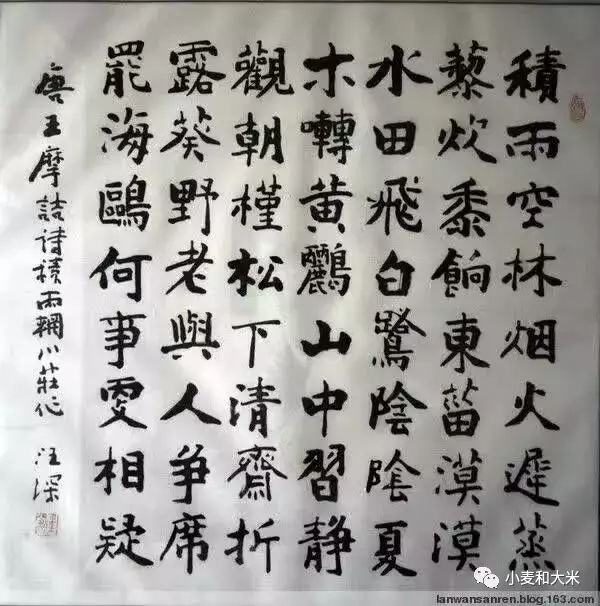 積雨空林烟火遲蒸
藜炊黍餉東菑漠漠
水田飛白鷺陰陰夏
木囀黄鸝山中習静
觀朝槿松下清齋折
露葵野老與人争席
罷海鷗何事更相疑
唐王摩詰诗積雨輞川莊作 汪深
小麦和大米
lanwansanren.blog.163.com